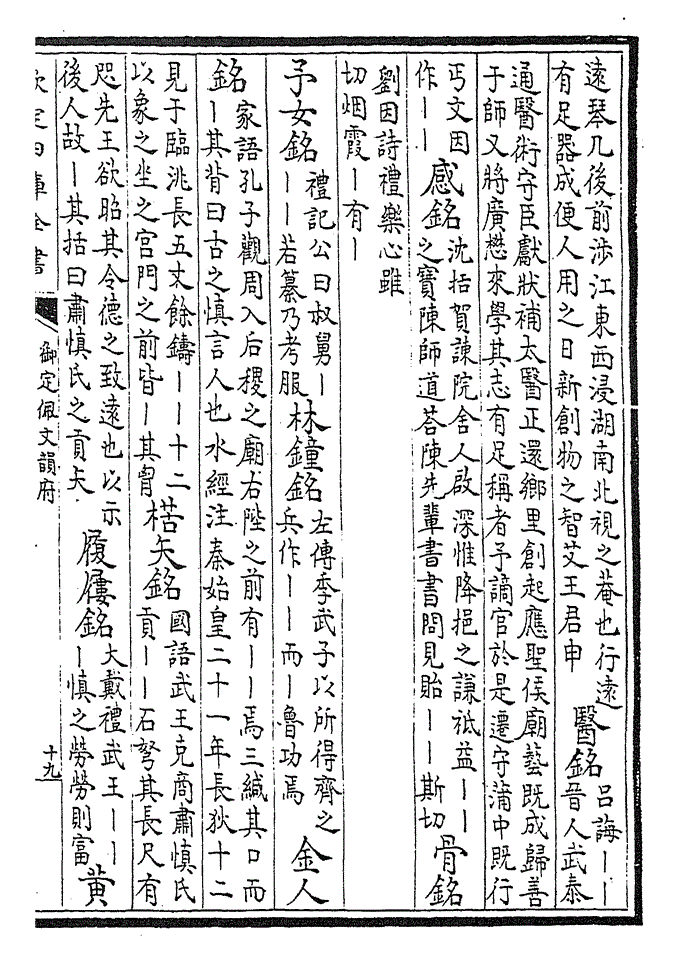 遠琴几後前涉江東西浸湖南北視之菴也行遠
有足器成便人用之日新創物之智艾王君申
醫銘
呂誨——
晉人武泰
通醫術守臣獻狀補太醫正還鄉里創起應聖侯廟藝既成歸善
于師又將廣懋來學其志有足稱者予謫官於是遷守蒲中既行
丐文因
作——
感銘
沈括賀諫院舍人啟深惟降挹之謙祗益——
之寶陳師道荅陳先輩書書問見貽——斯切
骨銘
劉因詩禮樂心雖
切烟霞—有—
予女銘
禮記公曰叔舅—
——若纂乃考服
林鐘銘
左傳季武子以所得齊之
兵作——而—魯功焉
金人
銘
家語孔子觀周入后稷之廟右陛之前有——焉三緘其口而
—其背曰古之慎言人也水經注秦始皇二十一年長狄十二
見于臨洮長五丈餘鑄——十二
以象之坐之宫門之前皆—其胷
楛矢銘
國語武王克商肅慎氏
貢——石弩其長尺有
咫先王欲昭其令德之致遠也以示
後人故—其括曰肅慎氏之貢矢
履屨銘
大戴禮武王——
—慎之勞勞則富
黃
欽定四庫全書
御定佩文韻府
十九